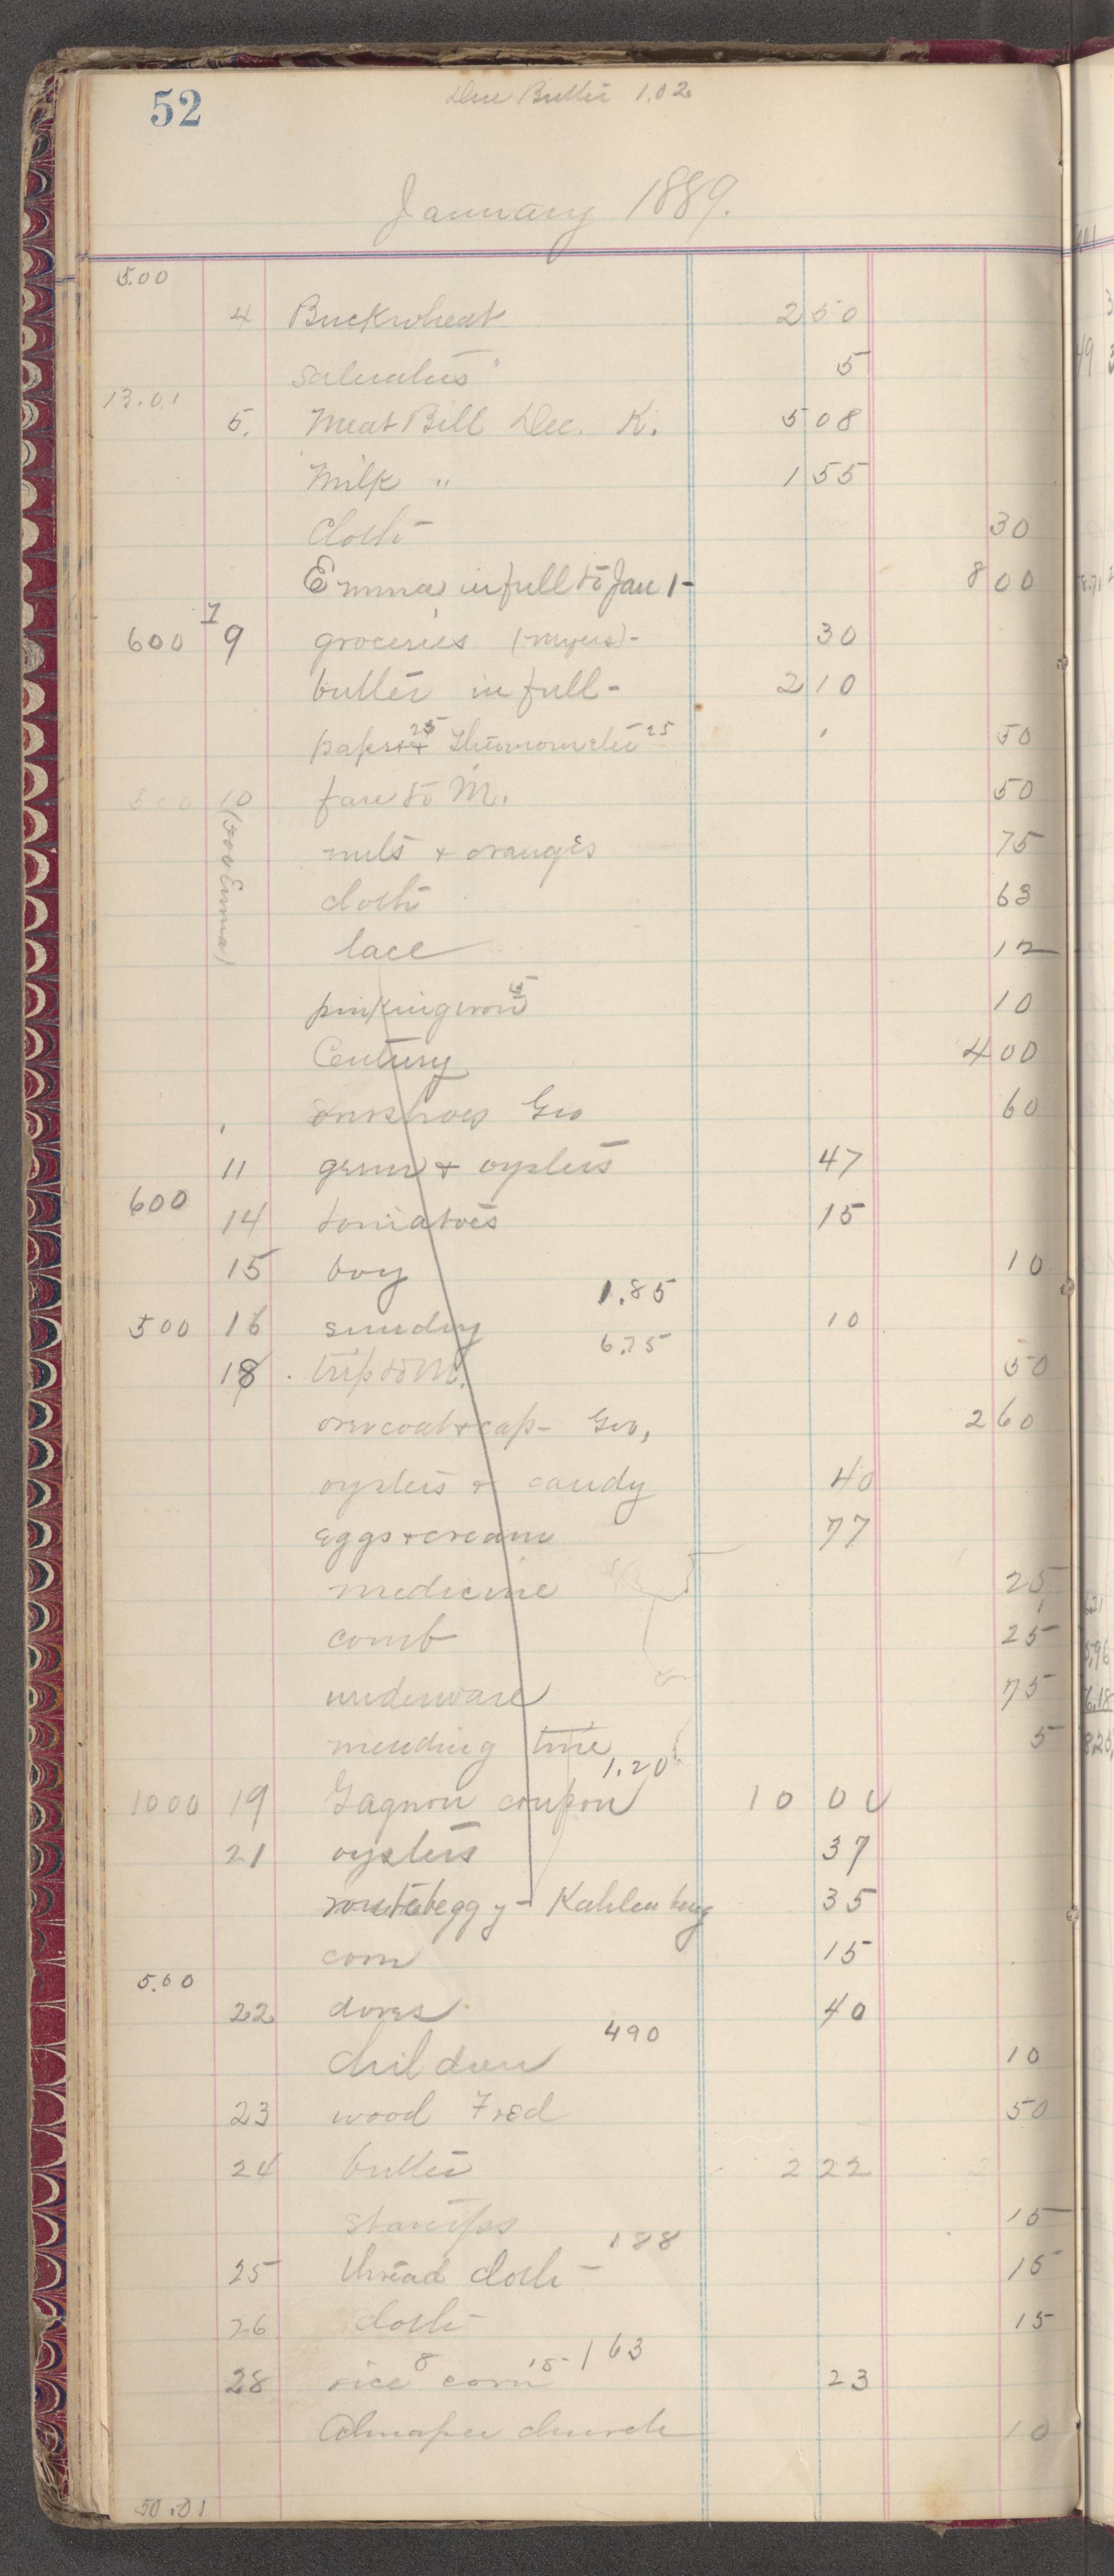 52
Due Butter 1.02
January 1889.
5.00
4 Buckwheat 2 50
Saleratus 5
13.01
5. Meat Bill Dec. K. 5 08
Milk " 1 55
Cloth 30
Emma in full to Jan 1- 8 00
7
600 9 groceries (Myers)- 30
butter in full- 2 10
paper 25 + Thermometer 25 50
500 10 fare to M. 50
(500 Emma)
nuts + oranges 75
cloth 63
lace 12
pinking iron 10
Century 4 00
overshoes Geo 60
11 germ + oysters 47
600
14 tomatoes 15
15 boy 10
1.85
500 16 sundry 10
6.75
18 trip to M. 50
overcoat + cap- Geo, 2 60
oysters + candy 40
eggs + cream 77
medicine 25
comb 25
underware 75
mending tire 5
1.20
1000 19 Gagnon coupon 10 00
21 oysters 37
Kahlenberg 35
corn 15
5.00
22 doves 40
490
children 10
23 wood Fred 50
24 butter 2 22
stamps 15
188
25 thread cloth- 15
26 cloth- 15
163
28 rice 8 corn 15 23
Ahnapee church 10
50.01